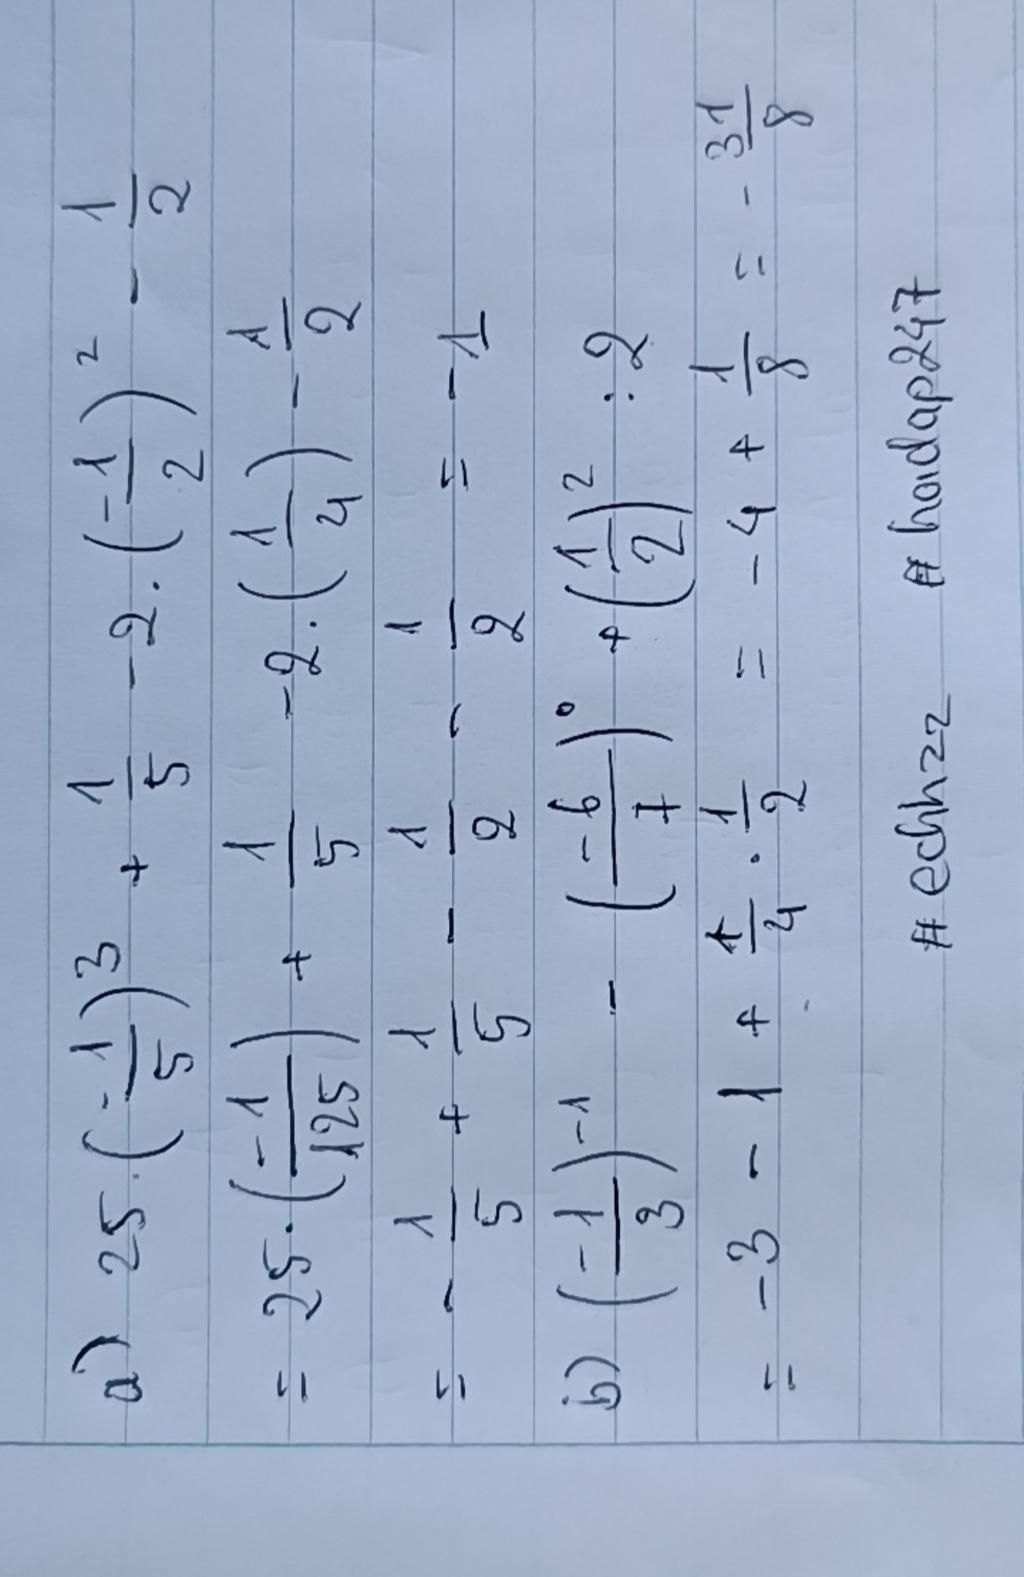 a) 25.(-1/5)³ + 1/5 - 2.(-1/2)² - 1/2
= 25.(-1/125) + 1/5 - 2.(1/4) - 1/2
= - 1/5 + 1/5 - 1/2 - 1/2 = -1
b) (-1/3)⁻¹ - (-6/7)⁰ + (1/2)² : 2
= -3 - 1 + 1/4 . 1/2 = -4 + 1/8 = - 31/8
# echhzz # hoidap247